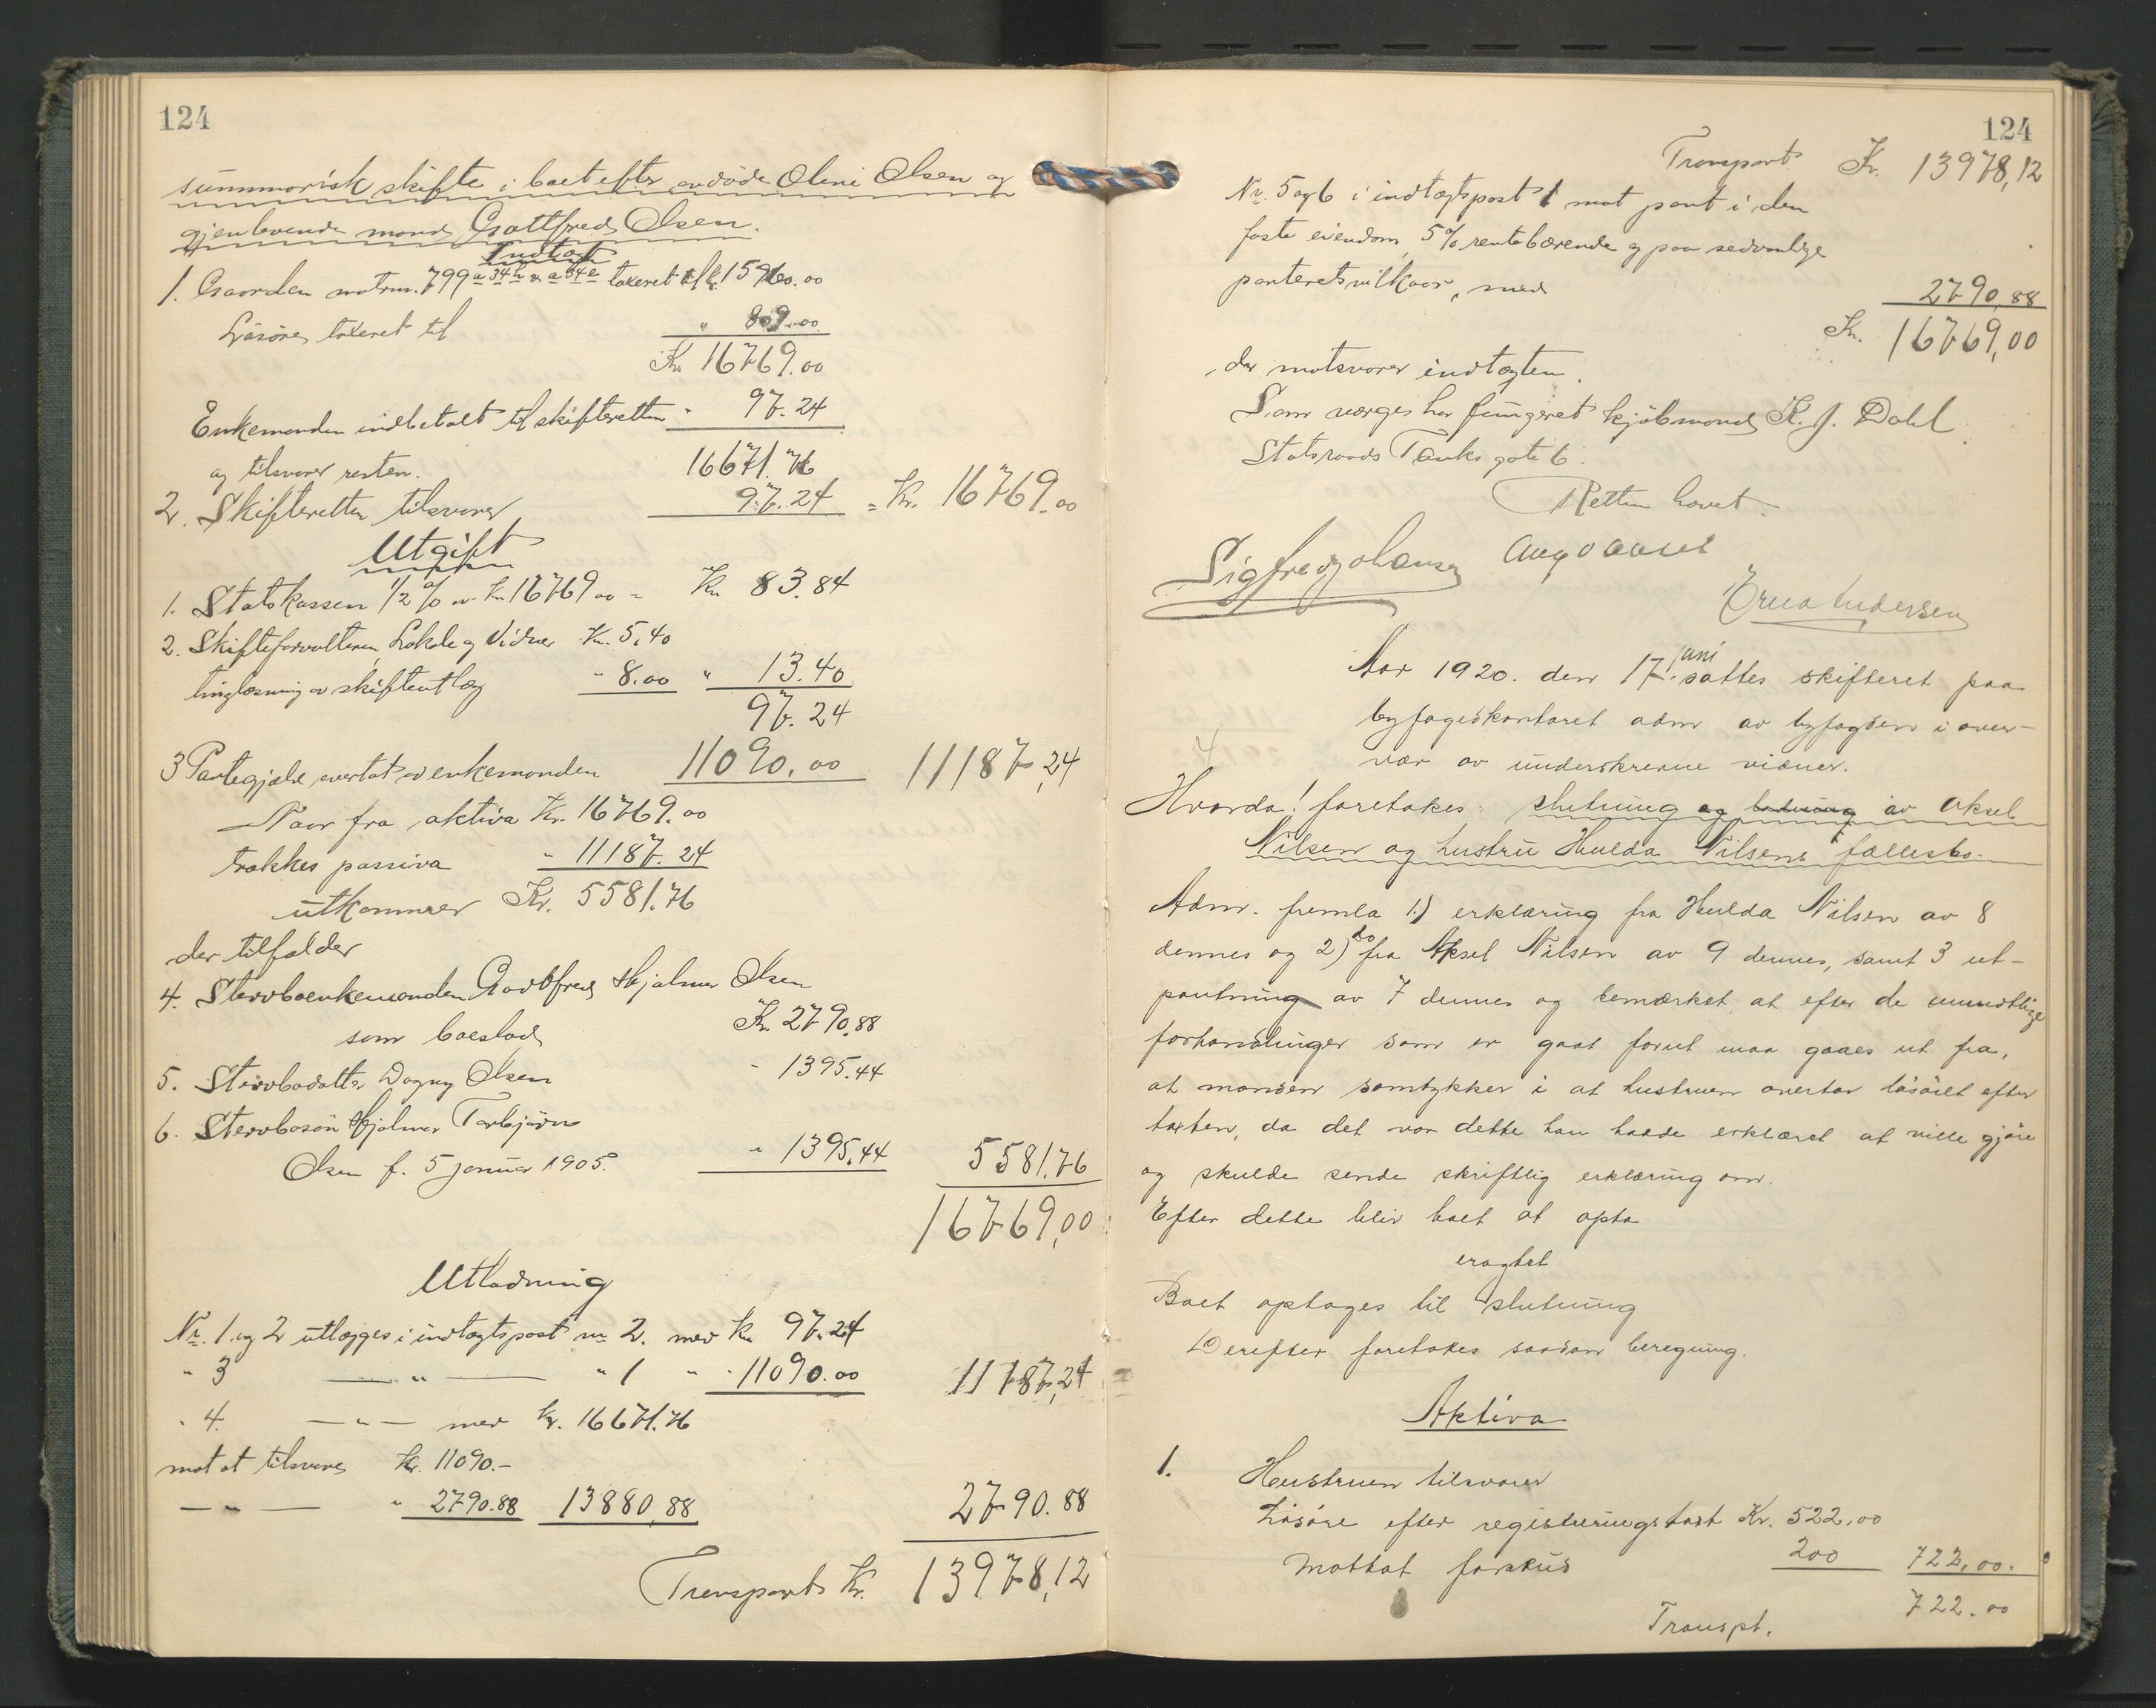 124
summarisk skifte i boet efter avdöde Oleni Olsen og
gjenlevende mand Gottfred Olsen.
Indtægt
1. Gaarden matrnr. 799 a 34 h & a 34 e taxeret til kr. 15960.00
Lösöre taxeret til " 809.00
Kr. 16769.00
Enkemanden indbetalt til skifteretten " 97.24
og tilsvarer resten. 16671.76
2. Skifteretten tilsvarer 97.24 = Kr. 16769.00
Utgift
1. Statskassen 1/2 % av kr. 16769.00 = Kr. 83.84
2. Skifteforvalteren Lokale og Vidner Kr. 5.40
tinglæsning av skifteutlæg " 8.00 " 13.40
97.24
3 Pantegjæld overtat av enkemanden 11090.00 11187,24
Naar fra aktiva Kr. 16769.00
trækkes passiva " 11187.24
utkommer Kr. 5581.76
der tilfalder
4. Stervboenkemanden Gottfred Hjalmar Olsen
som boeslod Kr. 2790.88
5. Stervbodatter Dagny Olsen " 1395.44
6. Stervbosön Hjalmar Torbjörn
Olsen f. 5 januar 1905. " 1395.44 5581.76
16769,00
Utlodning
Nr. 1 og 2 utlægges i indtægtspost nr. 2. med kr. 97.24
" 3 — " — " 1 " " 11090.00 11187,24
" 4. — " — med kr. 16671.76
mot at tilsvare kr. 11090.-
— " — " 2790.88 13880,88 2790.88
Transport Kr. 13978,12
124
Transport Kr. 13978,12
Nr. 5 og 6 i indtægtspost 1 mot pant i den
faste eiendom, 5% rentebærende og paa sedvanlige
panteretsvilkaar, med 2790,88
Kr. 16769,00
der motsvarer indtægten.
Som værge har fungeret kjöbmand K. J. Dahl
Statsraads Tanks gate 6.
Retten hævet.
Sigfred Johansen Aug
Erna Andersen
Aar 1920. den 17. juni sattes skifteret paa
byfogedkontoret adm av byfogden i over-
vær av underskrevne vidner.
Hvorda! foretokes: slutning og lodning av Aksel
Nilsen og hustru Hulda Nilsens fællesbo.
Adm. fremla 1) erklæring fra Hulda Nilsen av 8
dennes og 2) do fra Aksel Nilsen av 9 dennes, samt 3 ut-
pantning av 7 dennes og bemærket at efter de mundtlige
forhandlinger som er gaat forut maa gaaes ut fra,
at manden samtykker i at hustruen overtar lösöret efter
taxten, da det var dette han hadde erklæret at ville gjöre
og skulde sende skriftlig erklæring om.
Efter dette blir boet at opta
eragtet
Boet optages til slutning
Derefter foretokes saadan beregning.
Aktiva
1. Hustruen tilsvarer
Lösöre efter registreringstaxt Kr. 522.00
Mottat forskud 200 722,00.
722.00
Transpt.